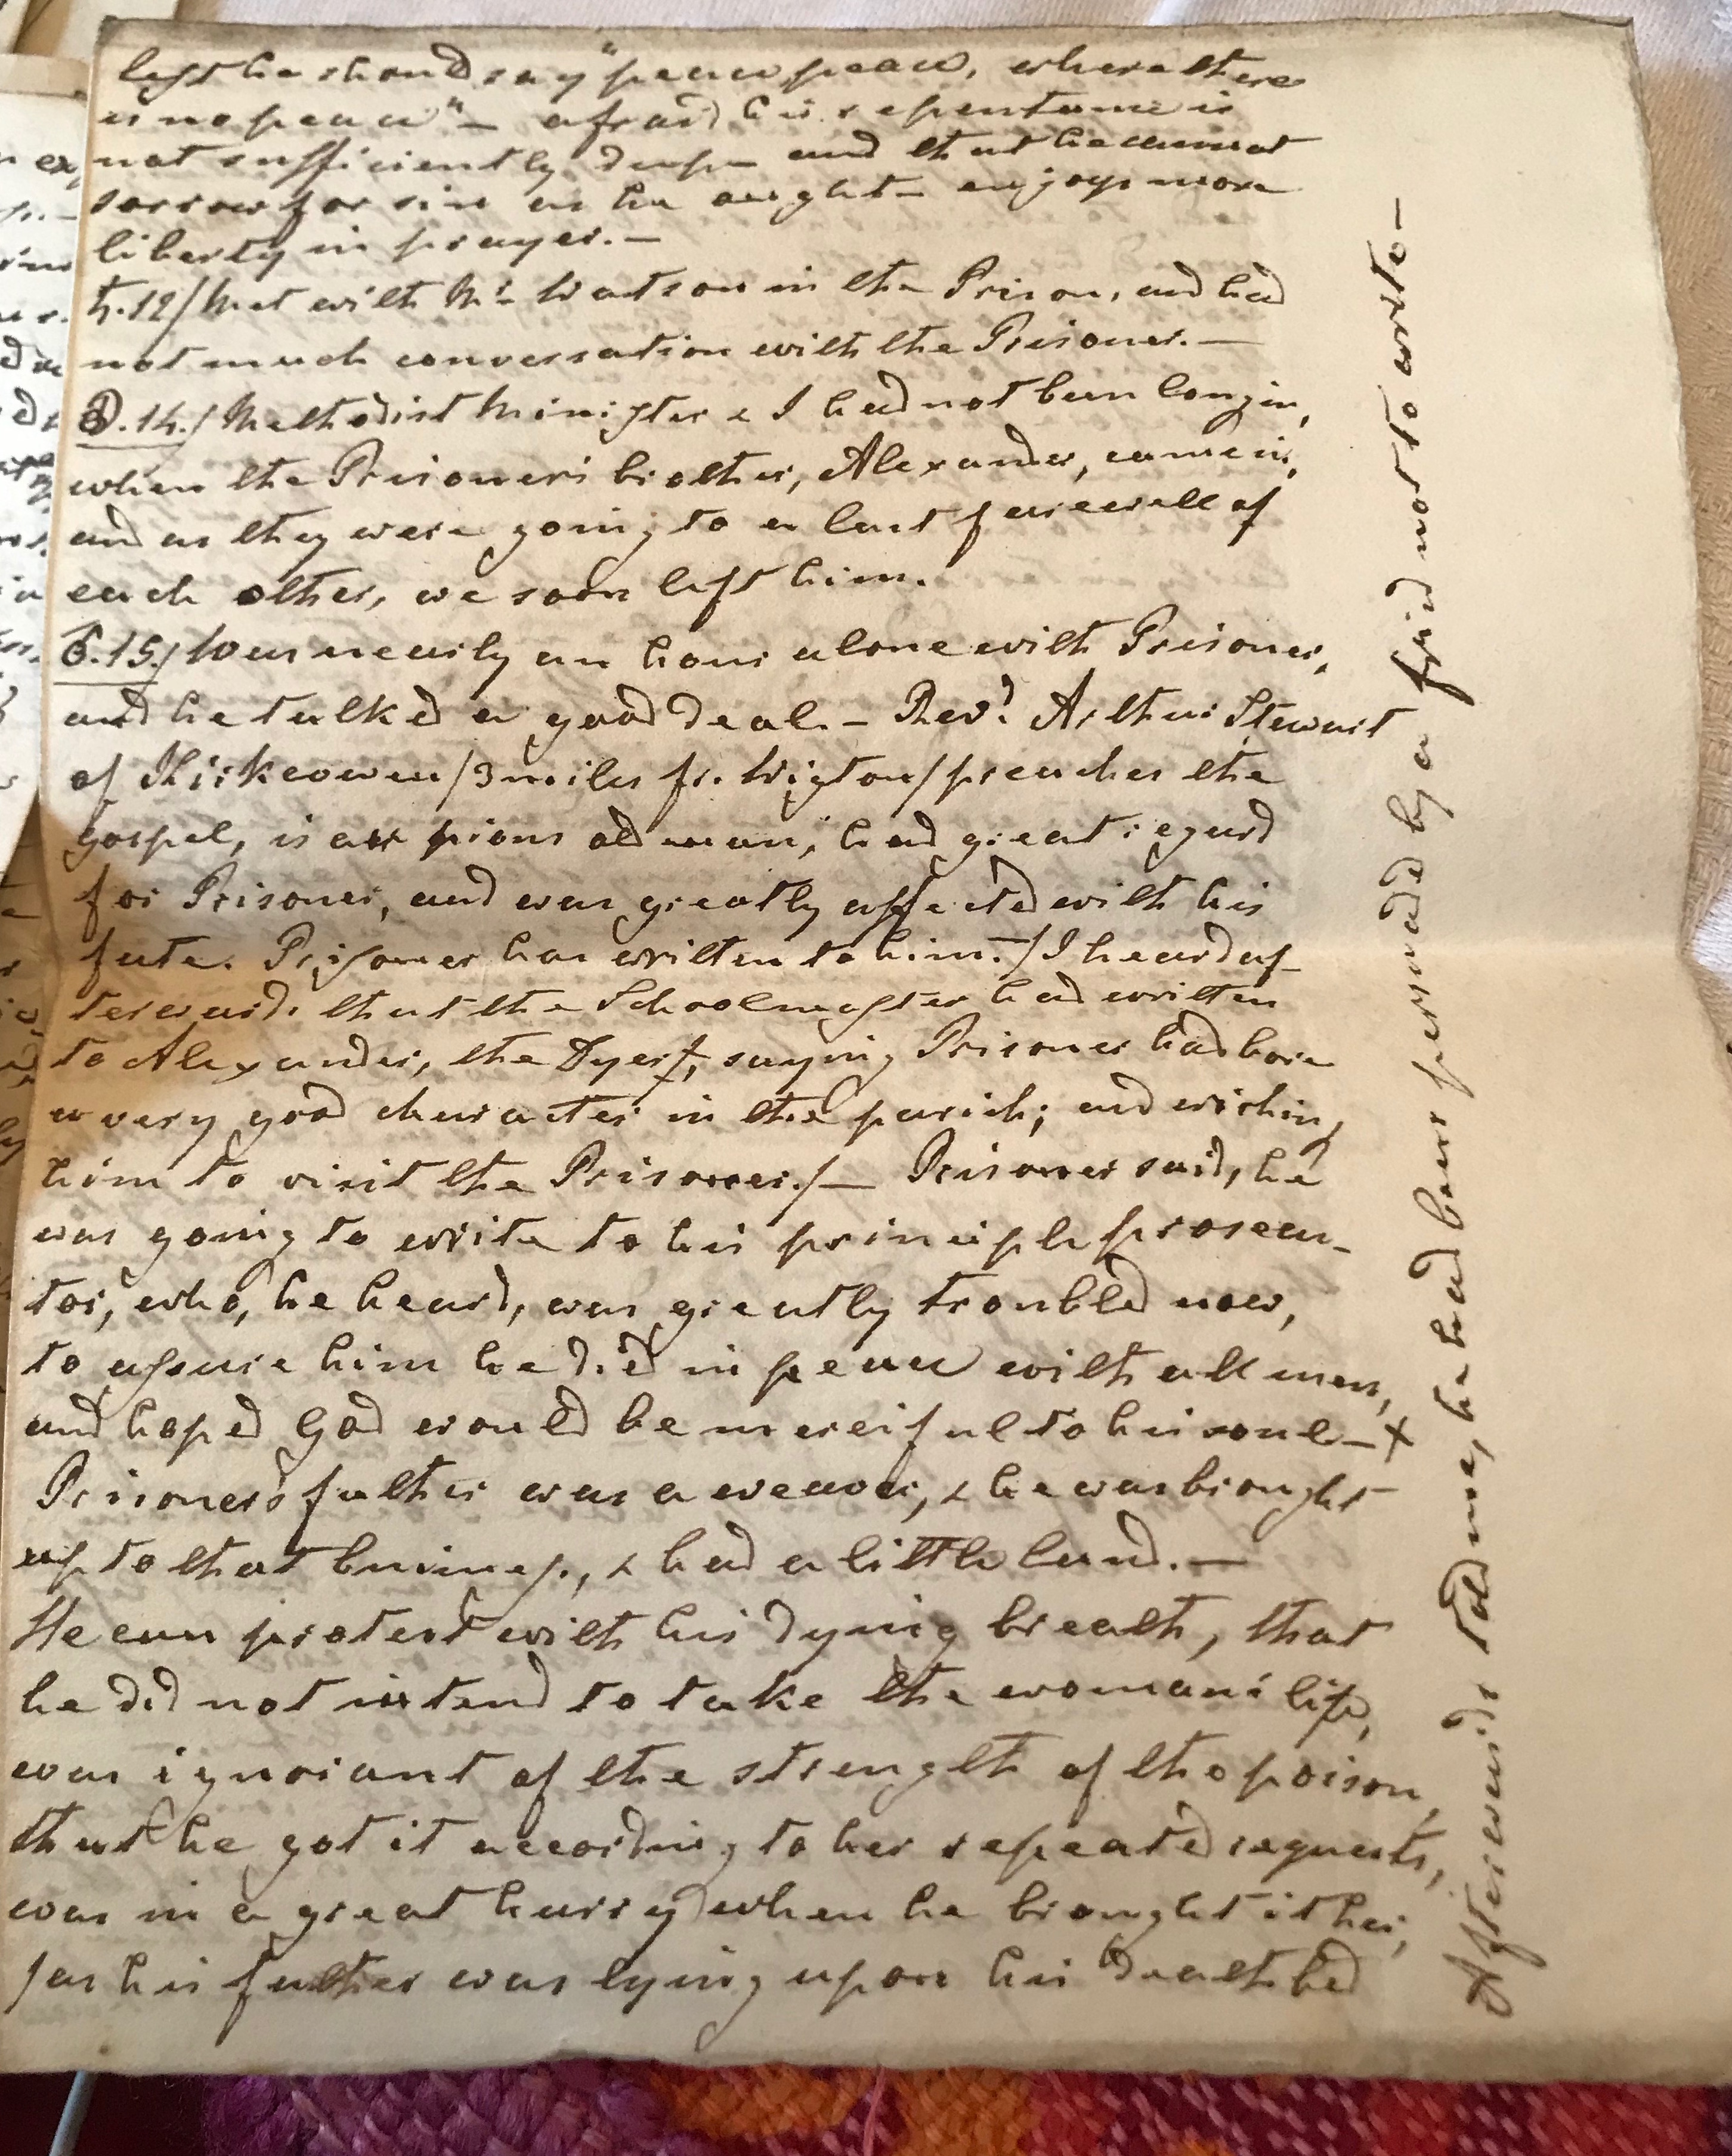 lest he should say "peace, peace, where there
is no peace" – afraid his repentance is
not sufficiently deep – and that he cannot
sorrow for sin as he ought – enjoys more
liberty in prayer. –
12/ Met with Mr Watson in the Prison, and had
not much conversation with the Prisoner. –
14./ Methodist Minister & I had not been long in,
when the Prisoner's brother, Alexander, came in,
and as they were going to a last farewell of
each other, we soon left him.
15./ Was nearly an hour alone with Prisoner,
and he talked a good deal. – Revd. Arthur Stewart
of Kirkcowan /3 miles fr. Wigton/ preaches the
gospel, is a pious old man, had great regard
for Prisoner, and was greatly affected with his
fate. Prisoner has written to him. – /I heard af-
terwards that the Schoolmaster had written
to Alexander, the Dyer, saying Prisoner had bore
a very good character in the parish; and wishing
him to visit the Prisoner./ – Prisoner said, he
was going to write to his principle prosecu-
tor, who, he heard, was greatly troubled now,
to assure him he died in peace with all men,
and hoped God would be merciful to his soul – +
Prisoner's father was a weaver, & he was brought
up to that business, & had a little land. –
He can protest with his dying breath, that
he did not intend to take the woman's life,
was ignorant of the strength of the poison,
that he got it according to her repeated requests,
was in a great hurry when he brought it her,
/as his father was lying upon his deathbed
Afterwards told me, he had been persuaded by a frind not to write –